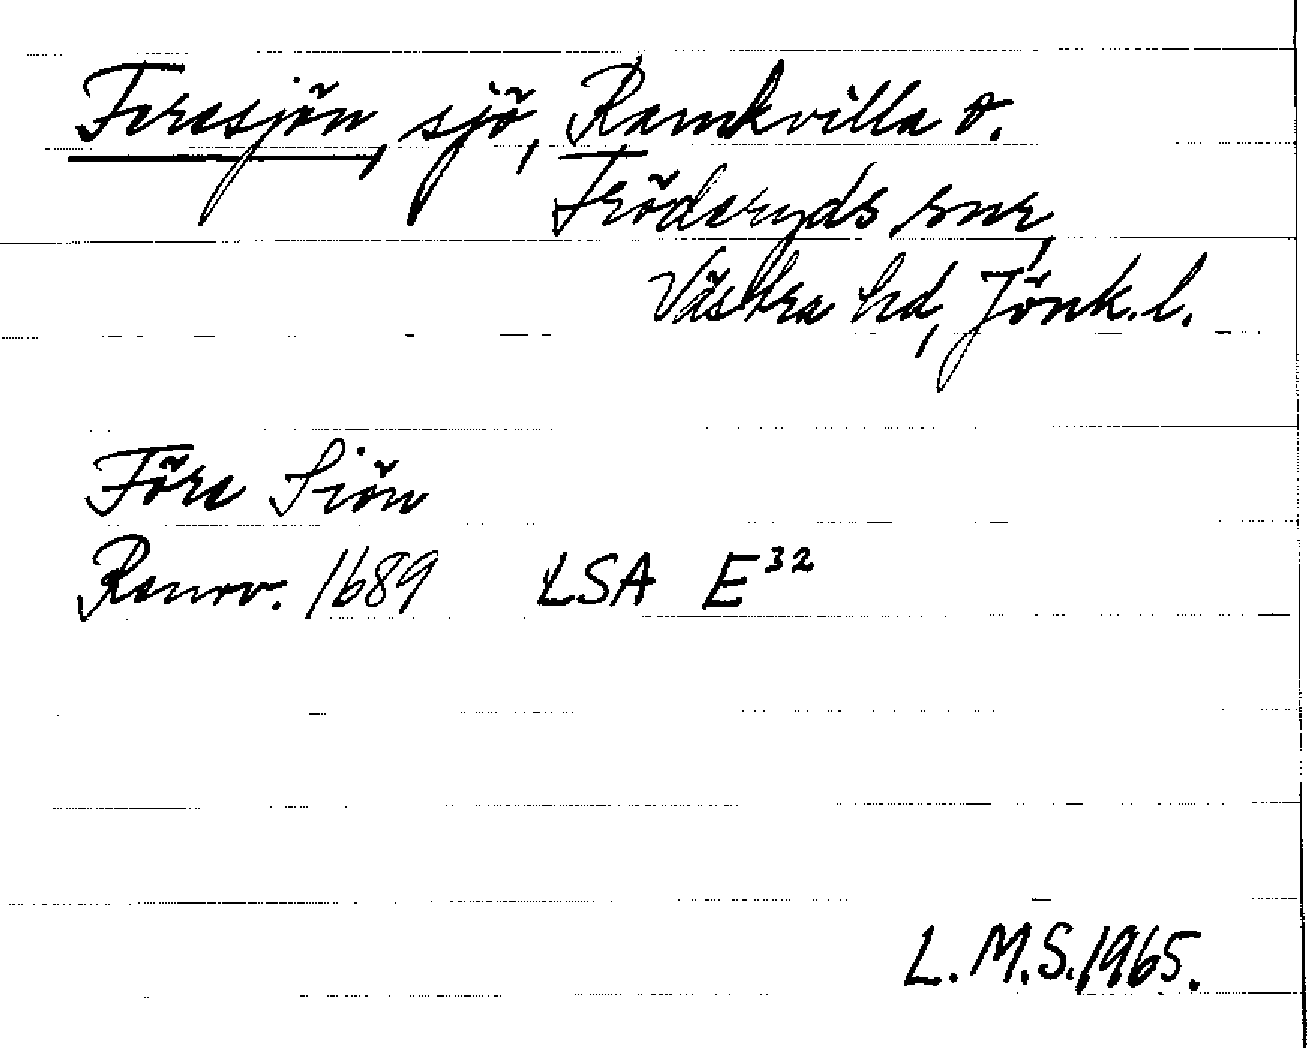 Forasjön, sjö, Ramkvilla o.
Fröderyds snr,
Västra hd, Jönk.l.
Före Siön
Renov. 1689 LSA E³²
L.M.S.1965.